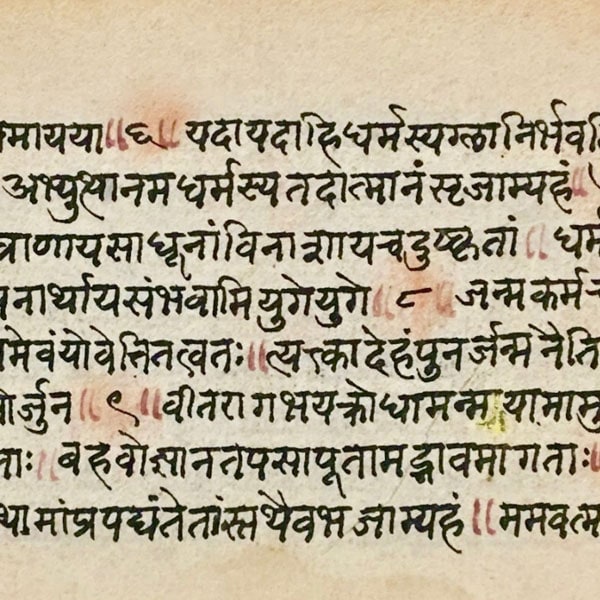 मायया॥६॥ यदायदाहिधर्मस्यग्लानिर्भव
अभ्युत्थानमधर्मस्यतदात्मानंसृजाम्यहं॥
त्राणायसाधूनांविनाशायचदुष्कृतां॥ धर्म
नार्थायसंभवामियुगेयुगे॥८॥ जन्मकर्मच
मेवंयोवेत्तितत्वतः॥त्यक्त्कादेहंपुनर्जन्मनैति
र्जुन॥९॥वीतरागभयक्रोधामन्मयामामु
ताः॥ बहवोज्ञानतपसापूतामद्भावमागताः॥
थामांप्रपद्यंतेतांस्तथैवभजाम्यहं॥ममवत्म